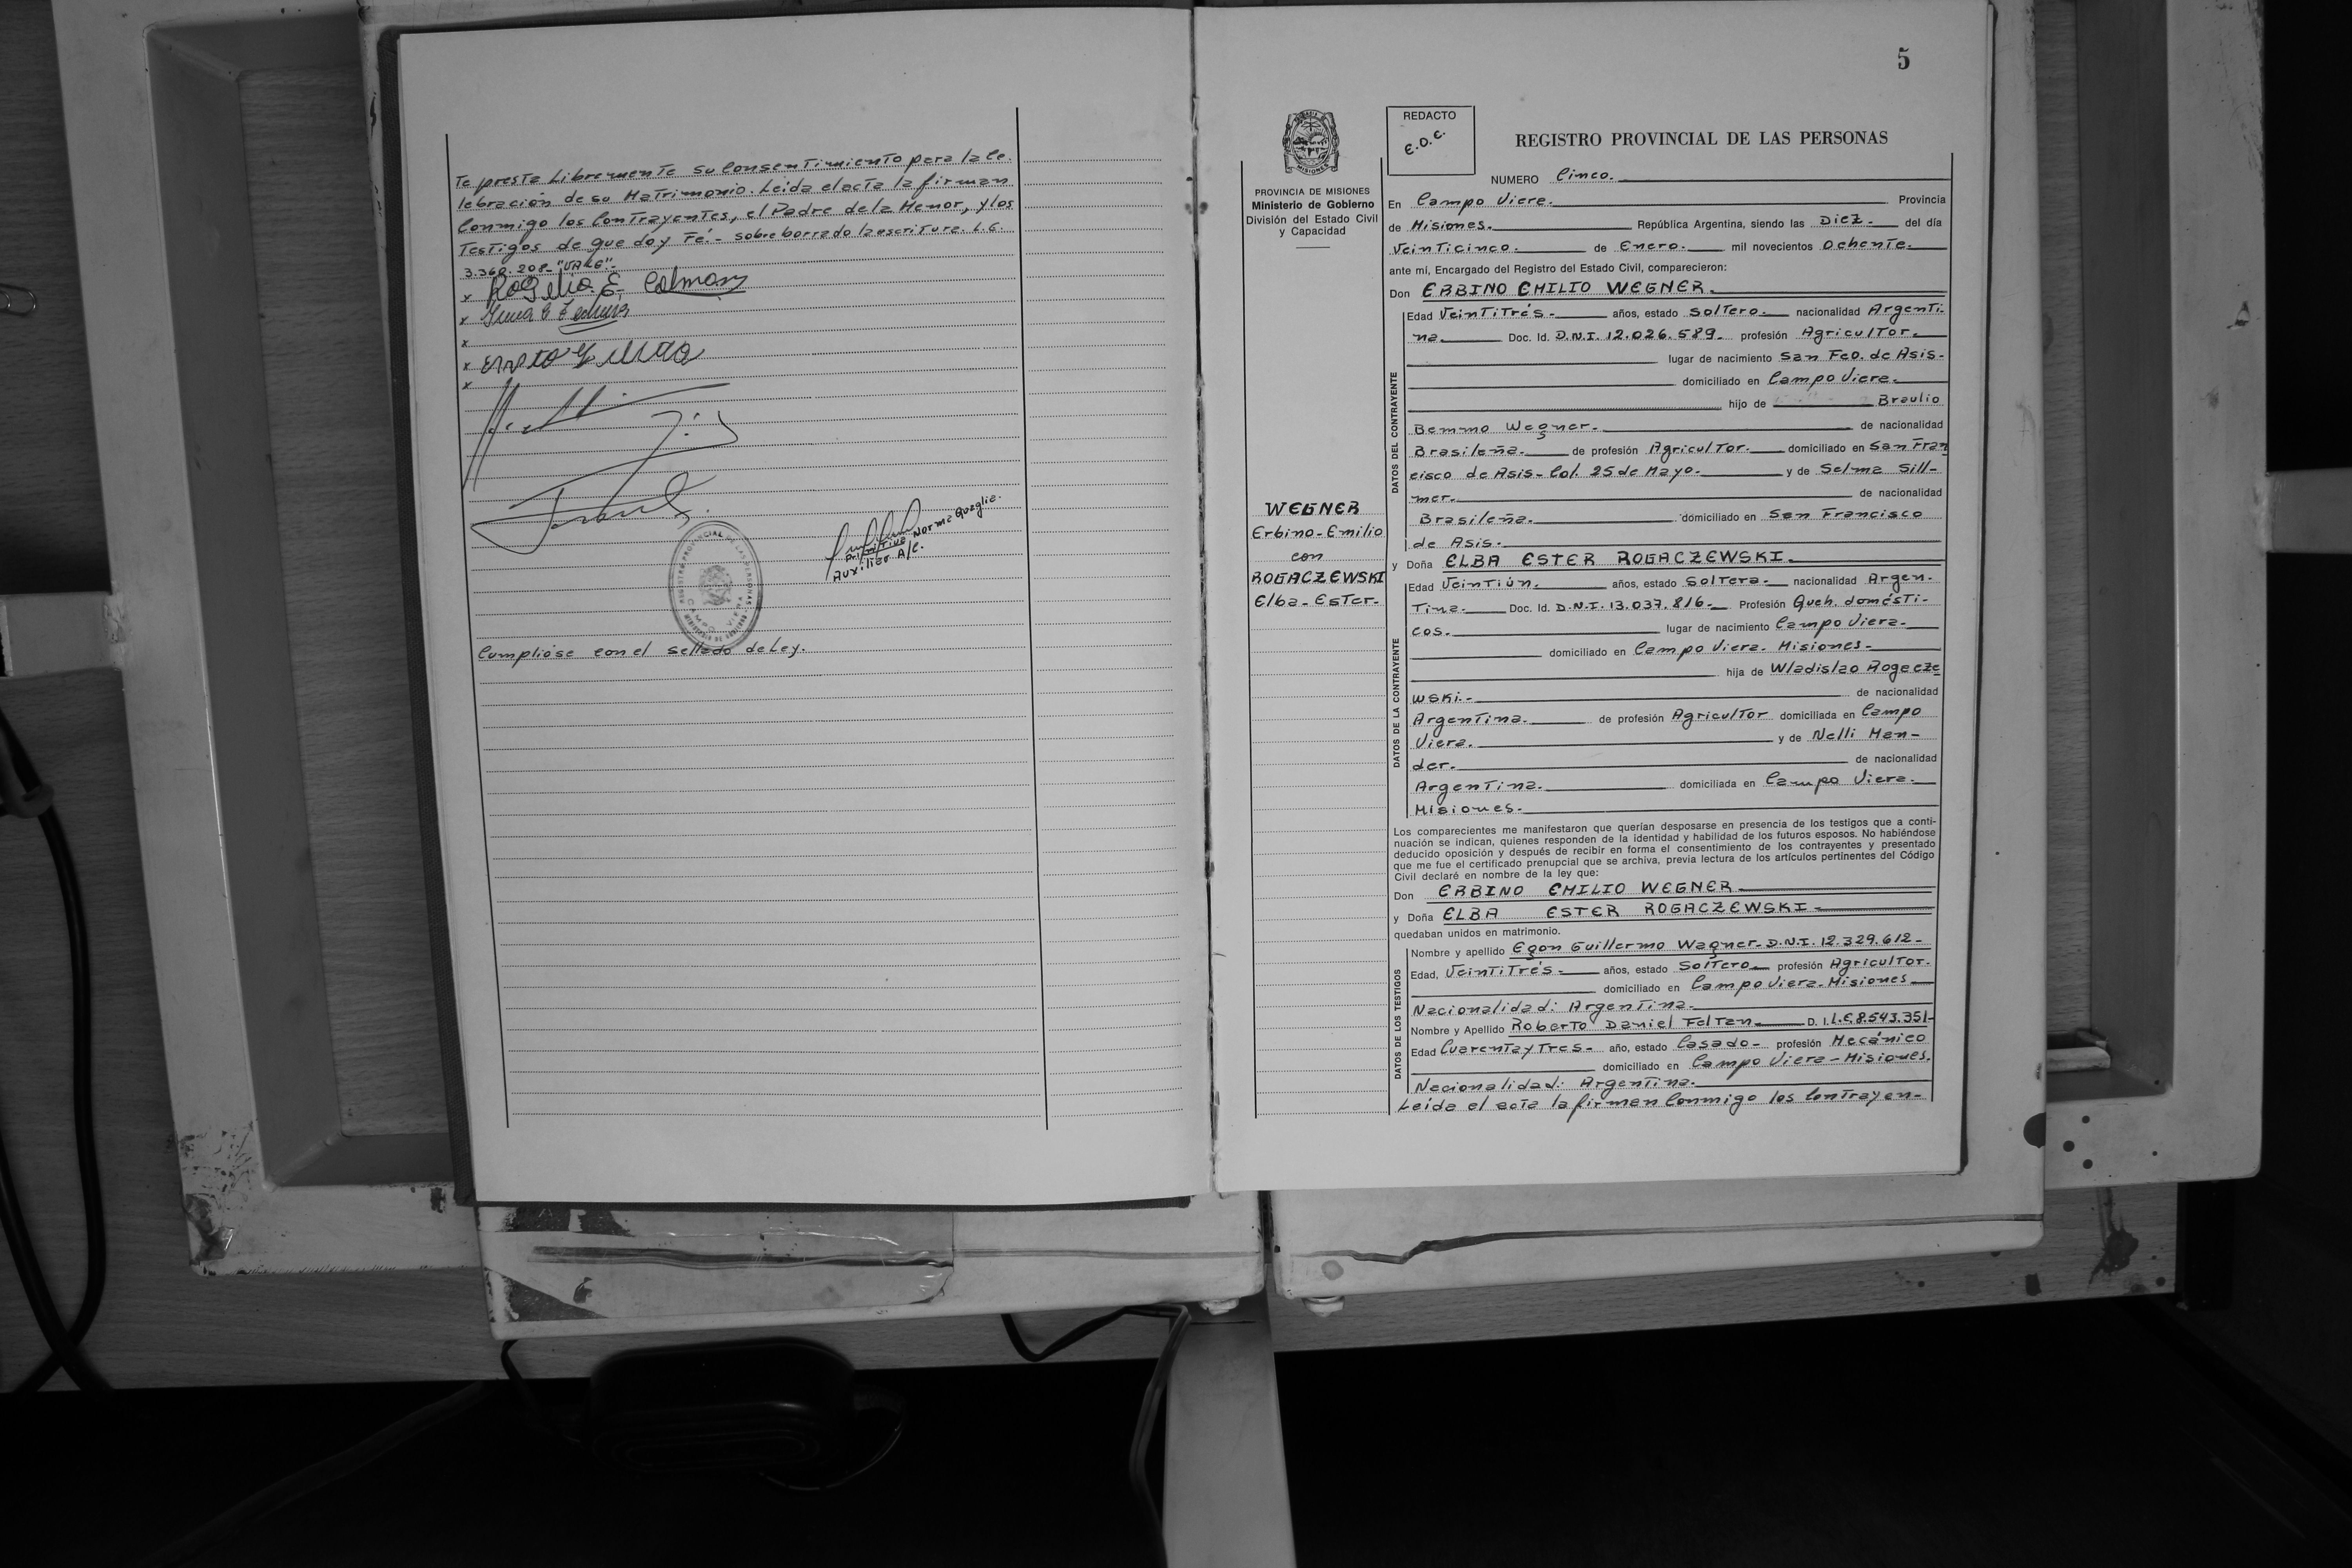 te presta Libremente su Consentimiento para la Ce-
lebración de su Matrimonio. Leída el acta la firman
Conmigo los Contrayentes, el Padre de la Menor, y los
Testigos de que doy Fé.- sobre borrado la escritura. L.E.
3.360.208- "VALE".-
x Rogelio E. Colman
x
x
x
x
Primitiva Norma Quaglia.
Auxiliar A/C.
REGISTRO PROVINCIAL DE LAS PERSONAS
CAMPO VIERA
Cumplióse con el sellado de Ley.
5
PROVINCIA DE MISIONES
Ministerio de Gobierno
División del Estado Civil
y Capacidad
WEGNER
Erbino-Emilio
con
ROGACZEWSKI
Elba-Ester-
REDACTO
E.O.C.
REGISTRO PROVINCIAL DE LAS PERSONAS
NUMERO Cinco.
En Campo Viera. Provincia
de Misiones. República Argentina, siendo las Diez- del día
Veinticinco. de Enero. mil novecientos Ochenta.
ante mí, Encargado del Registro del Estado Civil, comparecieron:
Don ERBINO EMILIO WEGNER.
DATOS DEL CONTRAYENTE
Edad Veintitrés- años, estado Soltero. nacionalidad Argenti-
na. Doc. Id. D.N.I. 12.026.589- profesión Agricultor.
lugar de nacimiento San Fco. de Asis-
domiciliado en Campo Viera.
hijo de Braulio
Bemmo Wegner. de nacionalidad
Brasileña. de profesión Agricultor. domiciliado en San Fran
cisco de Asis- Col. 25 de Mayo. y de Selma Sill-
mer. de nacionalidad
Brasileña. domiciliado en San Francisco
de Asis.
y Doña ELBA ESTER ROGACZEWSKI.
DATOS DE LA CONTRAYENTE
Edad Veintiún. años, estado Soltera. nacionalidad Argen-
tina. Doc. Id. D.N.I. 13.037.816- Profesión Queh. domésti-
cos. lugar de nacimiento Campo Viera.
domiciliado en Campo Viera. Misiones-
hija de Wladislao Rogacze
wski.- de nacionalidad
Argentina. de profesión Agricultor domiciliada en Campo
Viera. y de Nelli Man-
der. de nacionalidad
Argentina. domiciliada en Campo Viera.
Misiones.
Los comparecientes me manifestaron que querían desposarse en presencia de los testigos que a conti-
nuación se indican, quienes responden de la identidad y habilidad de los futuros esposos. No habiéndose
deducido oposición y después de recibir en forma el consentimiento de los contrayentes y presentado
que me fue el certificado prenupcial que se archiva, previa lectura de los artículos pertinentes del Código
Civil declaré en nombre de la ley que:
Don ERBINO EMILIO WEGNER
y Doña ELBA ESTER ROGACZEWSKI-
quedaban unidos en matrimonio.
DATOS DE LOS TESTIGOS
Nombre y apellido Egon Guillermo Wagner- D.N.I. 12.329.612-
Edad, Veintitrés- años, estado Soltero- profesión Agricultor.
domiciliado en Campo Viera. Misiones
Nacionalidad: Argentina.
Nombre y Apellido Roberto Daniel Feltan D. I. L.E. 8.543.351-
Edad Cuarenta y Tres- año, estado Casado- profesión Mecánico
domiciliado en Campo Viera-Misiones.
Nacionalidad: Argentina.
Leída el acta la firman Conmigo los Contrayen-